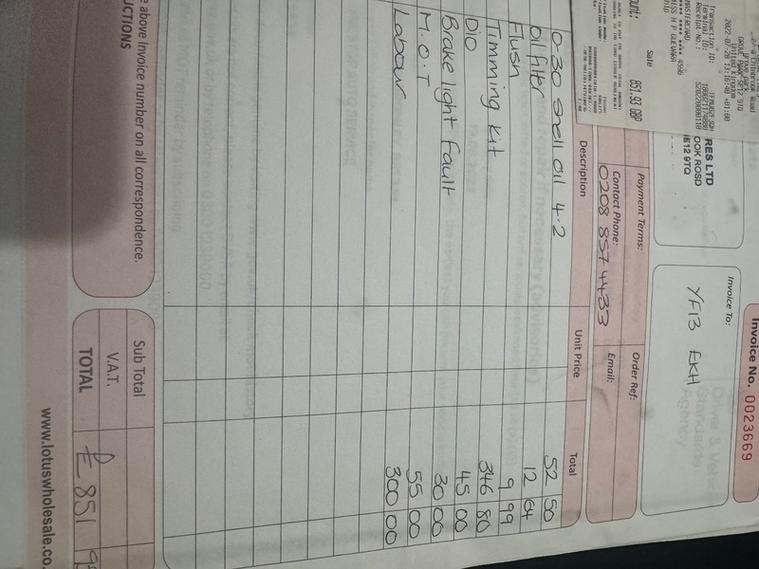 Invoice No. 0023669
Invoice To:
YF13 EKH
RES LTD
OOK ROSD
SE12 9TQ
Sale
851.93 GBP
Payment Terms:
Order Ref:
Contact Phone:
0208 857 4433
Email:
Description Unit Price Total
0-30 Shell oil 4.2 52 50
oil filter 12 64
Flush 9 99
Timming kit 346 80
Dio 45 00
Brake light fault 30 00
M.O.T 55 00
Labour 300 00
Sub Total
V.A.T.
TOTAL £851 9
e above Invoice number on all correspondence.
UCTIONS
www.lotuswholesale.co.